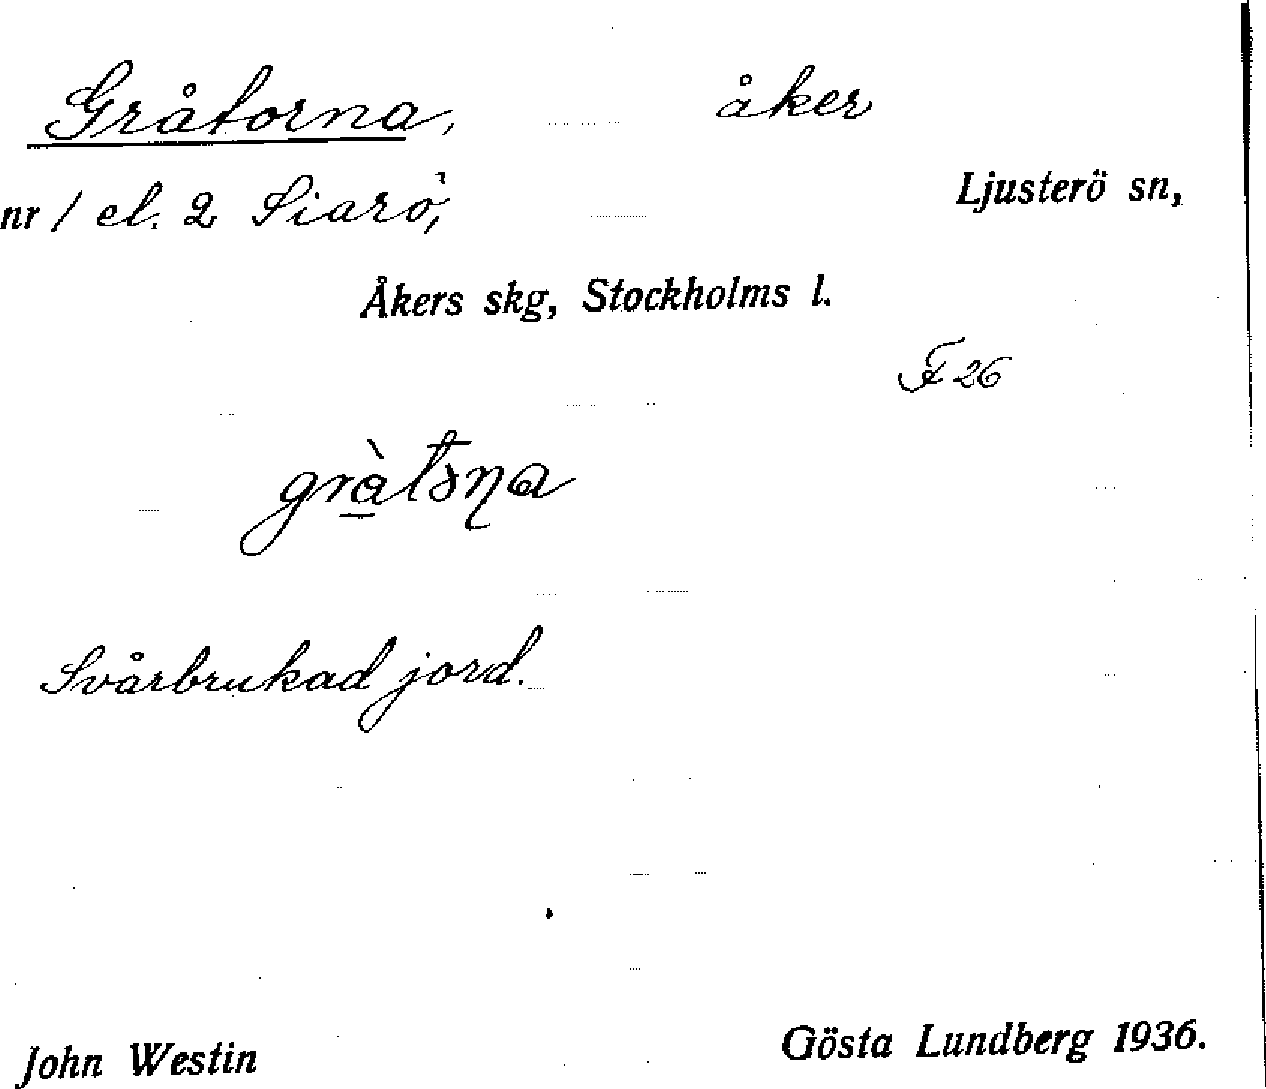 Gråtorna, åker
nr 1 el. 2 Siarö, Ljusterö sn,
Åkers skg, Stockholms l.
F 26
Svårbrukad jord.
John Westin Gösta Lundberg 1936.